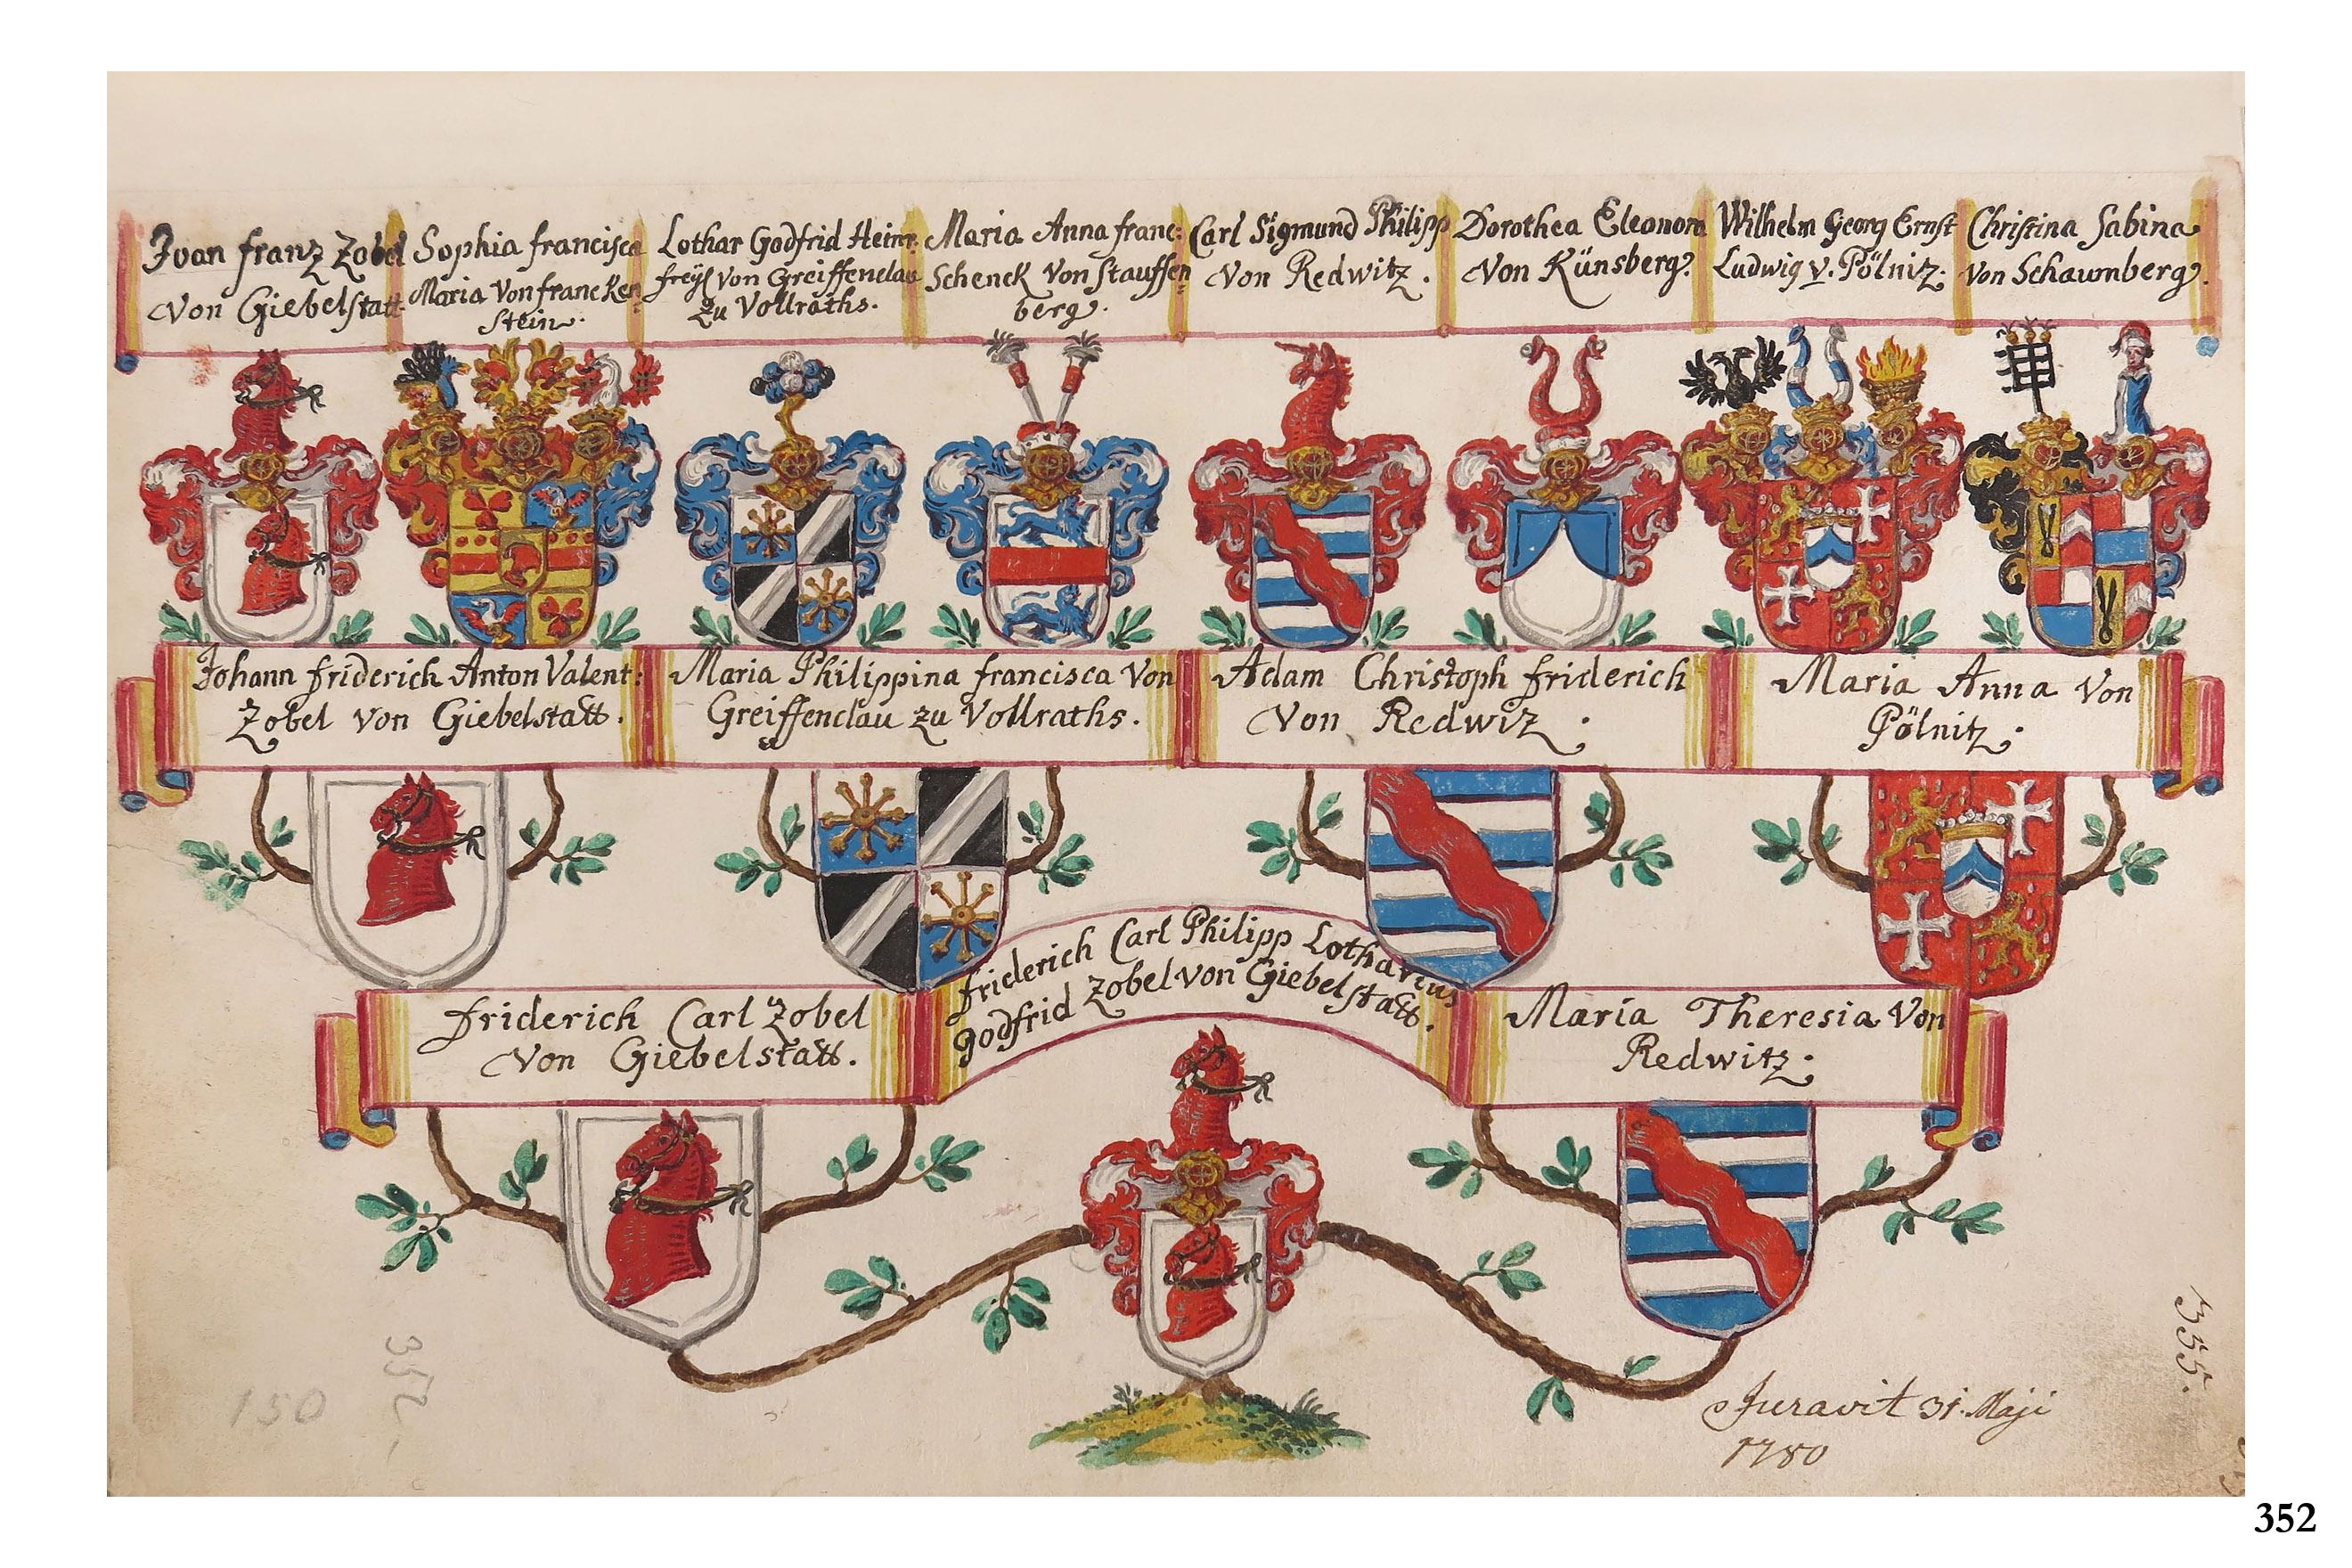 Joan franz Zobel
von Giebelstatt
Sophia francisca
Maria Von francken
stein.
Lothar Godfrid Heinr:
freyh von Greiffenclau
zu Vollraths.
Maria Anna franc:
Schenck von Stauffen
berg.
Carl Sigmund Philipp
von Redwitz.
Dorothea Eleonora
von Künsberg.
Wilhelm Georg Ernst
Ludwig v. Pölnitz.
Christina Sabina
von Schaumberg.
Johann friderich Anton Valent:
Zobel von Giebelstatt.
Maria Philippina francisca von
Greiffenclau zu Vollraths.
Adam Christoph friderich
von Redwiz.
Maria Anna von
Pölnitz.
friderich Carl Zobel
von Giebelstatt.
friderich Carl Philipp Lotharius
godfrid Zobel von Giebelstatt.
Maria Theresia von
Redwitz.
Juravit 31. Maji
1780
355.
352
150
352